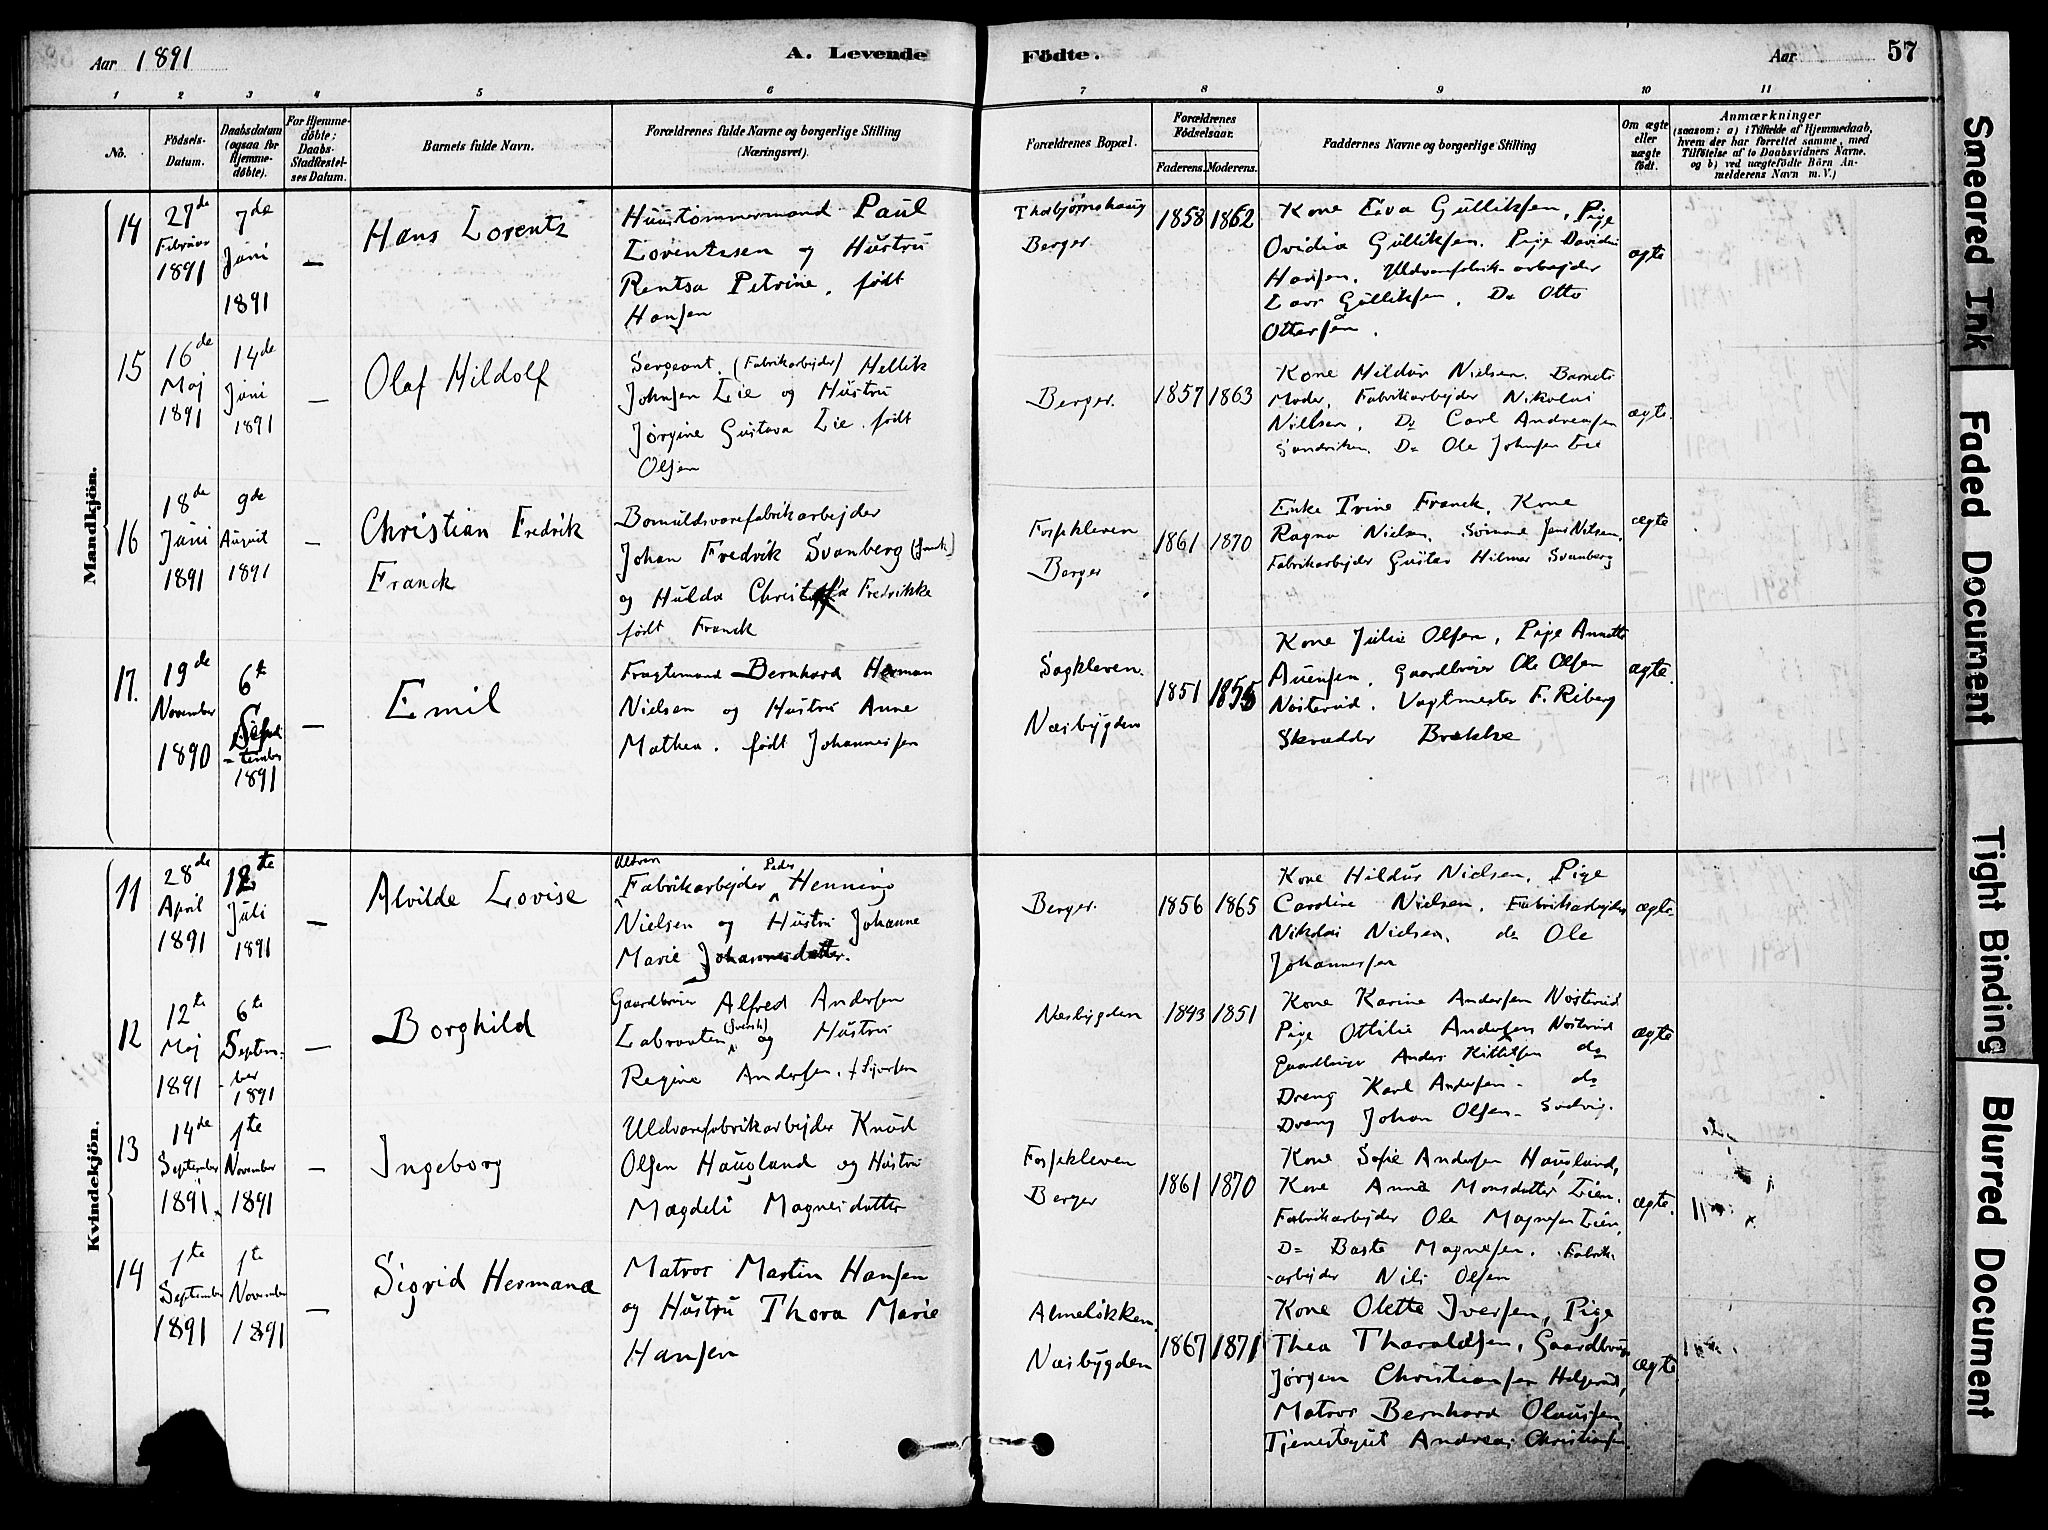 Aar 1891
A. Levende
Födte.
Aar
57
1 2 3 4 5 6 7 8 9 10 11
No.
Födsels-
Datum.
Daabsdatum
(ogsaa for
Hjemme-
döbte).
For Hjemme-
döbte:
Daabs-
Stadfæstel-
ses Datum.
Barnets fulde Navn.
Forældrenes fulde Navne og borgerlige Stilling
(Næringsvei).
Forældrenes Bopæl.
Forældrenes
Födselsaar.
Faderens. Moderens.
Faddernes Navne og borgerlige Stilling
Om ægte
eller
uægte
födt.
Anmærkninger
(saasom: a) i Tilfælde af Hjemmedaab,
hvem der har forrettet samme, med
Tilföielse af to Daabsvidners Navne.
og b) ved uægtefödte Börn An-
melderens Navn m. V.)
Mandkjön.
14
27de
Februar
1891
7de
Juni
1891
—
Hans Lorentz
Huustømmermand Paul
Lorentzsen og Hustru
Rentsa Petrine, født
Hansen
Thorbjørnshaug
Berger.
1858 1862
Kone Eva Gulliksen, Pige
Ovidia Gulliksen. Pige Davida
Hansen. Uldvarefabrik-arbejder
Lars Gulliksen. Do Otto
Ottersen.
ægte
15
16de
Maj
1891
14de
Juni
1891
—
Olaf Hildolf
Sergeant. (Fabrikarbejder) Hellik
Johnsen Lie og Hustru
Jørgine Gustava Lie født
Olsen
Berger.
1857 1863
Kone Hildur Nielsen. Barnets
Moder, Fabrikarbejder Nikolai
Nielsen. Do Carl Andreasen
Sandviken. Do Ole Johnsen Lie
ægte.
16
18de
Juni
1891
9de
August
1891
—
Christian Fredrik
Franck
Bomuldsvarefabrikarbejder
Johan Fredrik Svanberg (svensk)
og Hulda Fredrikke
født Franck
Fossekleven
Berger
1861 1870
Enke Trine Franck, Kone
Ragna Nielsen. Sømand Jens Nilsen.
Fabrikarbejder Gustav Hilmar Svanberg
ægte
17.
19de
November
1890
6te
Septem-
-tember
1891
—
Emil
Fragtemand Bernhard Herman
Nielsen og Hustru Anne
Mathea. født Johannessen
Sagkleven.
Næsbygden
1851 1855
Kone Julie Olsen, Pige Annette
Auensen. Gaardbruger Ole Olsen
Nøsterud. Vagtmester F. Riberg
Skrædder Brekke
ægte.
Kvindekjön.
11
28de
April
1891
12te
Juli
1891
—
Alvilde Lovise
Uldvare Peder
Fabrikarbejder Henning
Nielsen og Hustru Johanne
Marie Johannesdatter.
Berger.
1856 1865
Kone Hildur Nielsen, Pige
Caroline Nielsen. Fabrikarbejder
Nikolai Nielsen. do Ole
Johannessen
ægte
12
12te
Maj
1891
6te
Septem-
-ber
1891
—
Borghild
Gaardbruger Alfred Andersen
Labraaten (svensk) og Hustru
Regine Andersen.
Næsbygden
1843 1851
Kone Karine Andersen Nøsterud
Pige Ottilie Andersen Nøsterud
Gaardbruger Anders Kittilsen do
Dreng Karl Andersen. do
Dreng Johan Olsen
ægte
13
14de
September
1891.
1te
November
1891
—
Ingeborg
Uldvarefabrikarbejder Knud
Olsen Haugland og Hustru
Magdeli Magnesdatter
Fossekleven
Berger
1861 1870
Kone Sofie Andersen Haugland,
Kone Anna Monsdatter Lien.
Fabrikarbejder Ole Magnesen Lien,
Do Baste Magnesen. Fabrik-
-arbejder Nils Olsen
ægte.
14
1te
September
1891
1te
November
1891
—
Sigrid Hermana
Matros Martin Hansen
og Hustru Thora Marie
Hansen
Almeløkken.
Næsbygden
1867 1871
Kone Olette Iversen, Pige
Thea Tharaldsen, Gaardbruger
Jørgen Christiansen Helgerud,
Matros Bernhard Olaussen,
Tjenestegut Andreas Christiansen.
ægte
Smeared Ink
Faded Document
Tight Binding
Blurred Document